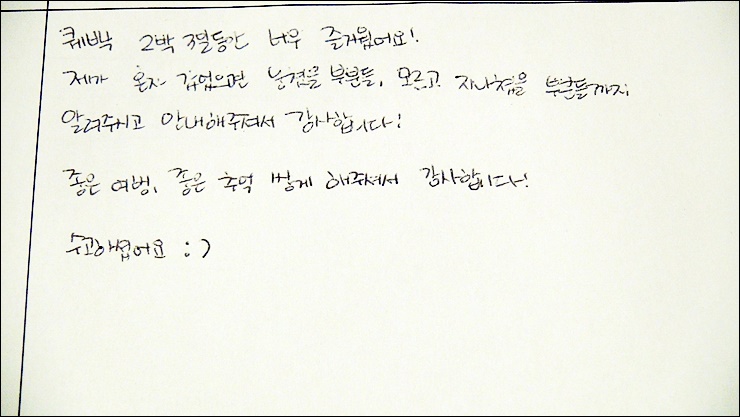 퀘백 2박 3일동안 너무 즐거웠어요!
제가 혼자 갔었으면 놓쳤을 부분들, 모르고 지나쳤을 부분들까지
알려주시고 안내해주셔서 감사합니다!
좋은 여행, 좋은 추억 쌓게 해주셔서 감사합니다!
수고하셨어요 :)